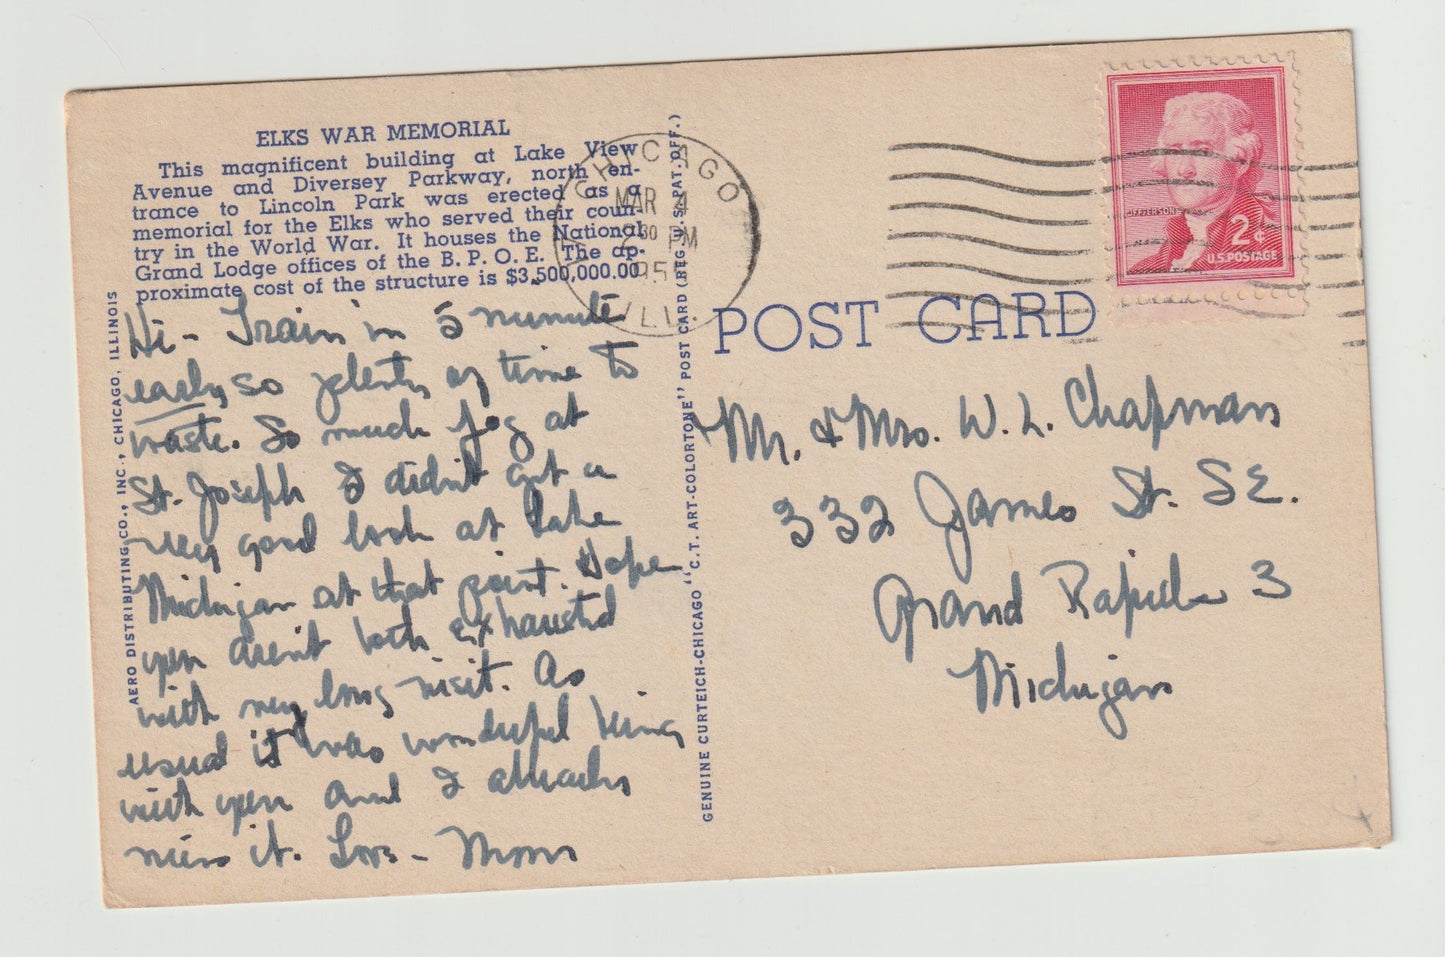 ELKS WAR MEMORIAL
This magnificent building at Lake View
Avenue and Diversey Parkway, north en-
trance to Lincoln Park was erected as a
memorial for the Elks who served their coun-
try in the World War. It houses the National
Grand Lodge offices of the B. P. O. E. The ap-
proximate cost of the structure is $3,500,000.00
Hi - Train in 5 minutes
early so plenty of time to
waste. So much fog at
St. Joseph I didn't get a
very good look at Lake
Michigan at that point. Hope
you aren't both exhausted
with my long visit. As
usual it was wonderful being
with you and I already
miss it. Love - Mom
AERO DISTRIBUTING CO., INC., CHICAGO, ILLINOIS
GENUINE CURTEICH-CHICAGO "C.T. ART-COLORTONE" POST CARD (REG. U.S. PAT. OFF.)
CHICAGO
MAR 4
2 30 PM
195
ILL.
JEFFERSON
2¢
U.S. POSTAGE
POST CARD
Mr. & Mrs. W. L. Chapman
332 James St. S E.
Grand Rapids 3
Michigan